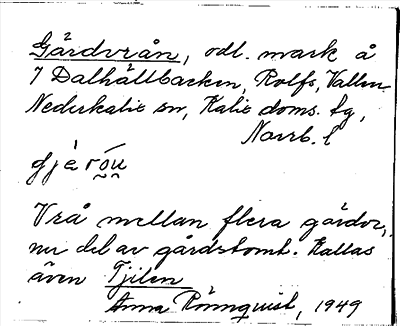 Gårdvrån, odl. mark å
7 Dalhällbacken, Rolfs, Vallen
Nederkalix sn, Kalix doms. tg,
Norrb. l
Vrå mellan flera gårdar,
nu del av gårdstomt. Kallas
även Tjilen
Anna Rönnquist, 1949